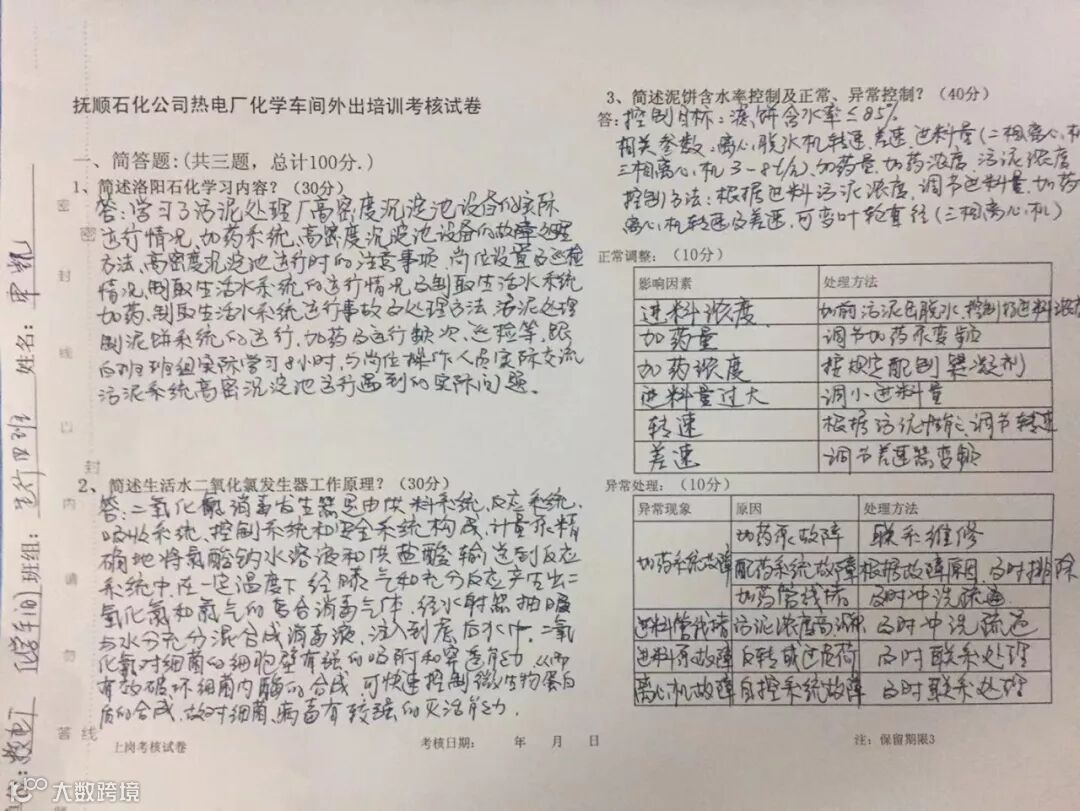 抚顺石化公司热电厂化学车间外出培训考核试卷
一、简答题:(共三题，总计100分.)
1、简述洛阳石化学习内容？(30分)
答:学习了污泥处理厂高密度沉淀池设备的实际
运行情况,加药系统,高密度沉淀池设备的故障处理
方法、高密度沉淀池运行时的注意事项、岗位设置及巡检
情况、制取生活水系统的运行情况,及制取生活水系统
加药、制取生活水系统运行事故及处理方法、污泥处理
制泥饼系统的运行、加药及运行频次、巡检等、跟
白班班组实际学习8小时,与岗位操作人员实际交流
污泥系统高密沉淀池运行遇到的实际问题.
2、简述生活水二氧化氯发生器工作原理？(30分)
答:二氧化氯消毒发生器是由供料系统,反应系统、
吸收系统、控制系统和安全系统构成,计量泵精
确地将氯酸钠水溶液和盐酸输送到反应
系统中,在一定温度下经曝气和充分反应产生出二
氧化氯和氯气的复合消毒气体,经水射器抽吸
与水充分混合成消毒液,注入到水中.二氧
化氯对细菌的细胞壁有强的吸附和穿透能力,从而
有效破坏细菌内酶的合成,可快速控制微生物蛋白
质的合成,故对细菌、病毒有较强的灭活能力.
上岗考核试卷
考核日期: 年 月 日
3、简述泥饼含水率控制及正常、异常控制？(40分)
答:控制目标:滤饼含水率≤85%
相关参数:离心脱水机转速、差速、进料量(二相离心机
三相离心机3-8t/h)加药量、加药浓度、污泥浓度
控制方法:根据进料污泥浓度,调节进料量、加药
离心机转速及差速,可变叶轮直径(三相离心机)
正常调整:(10分)
影响因素 处理方法
进料浓度 加前污泥脱水,控制进料浓度
加药量 调节加药泵变频
加药浓度 按规定配制絮凝剂
进料量过大 调小进料量
转速 根据污泥性能,调节转速
差速 调节差速器变频
异常处理:(10分)
异常现象 原因 处理方法
加药系统故障 加药泵故障 联系维修
配药系统故障 根据故障原因,及时排除
加药管线堵 及时冲洗疏通
进料管线堵 污泥浓度高 及时冲洗疏通
进料泵故障 反转或过负荷 及时联系处理
离心机故障 自控系统故障 及时联系处理
注:保留期限3
单位:热电厂 化学车间 班组:运行四班 姓名:
密 封 线 以 内 请 勿 答
密 封 线
大数跨境